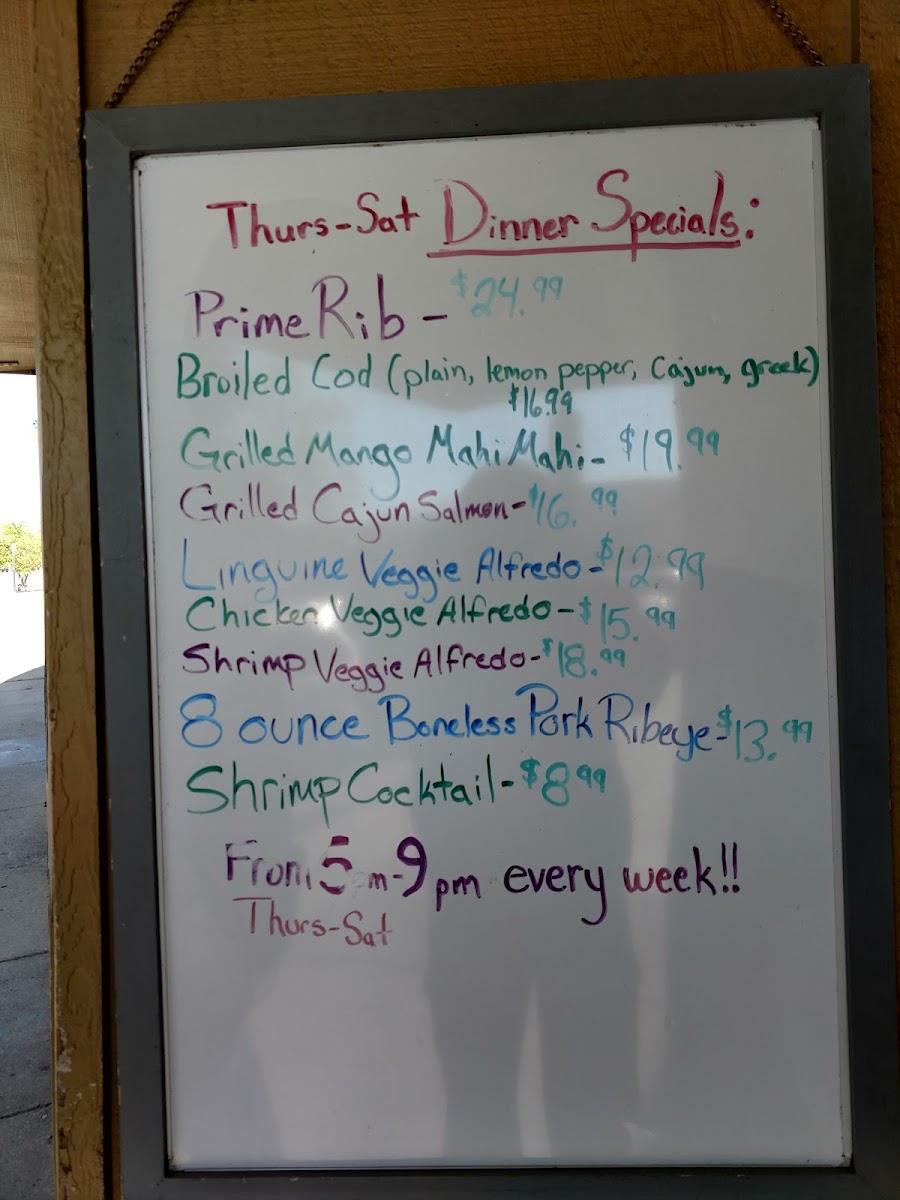 Thurs-Sat Dinner Specials:
Prime Rib - $24.99
Broiled Cod (plain, lemon pepper, Cajun, greek)
$16.99
Grilled Mango Mahi Mahi - $19.99
Grilled Cajun Salmon - $16.99
Linguine Veggie Alfredo - $12.99
Chicken Veggie Alfredo - $15.99
Shrimp Veggie Alfredo - $18.99
8 ounce Boneless Pork Ribeye - $13.99
Shrimp Cocktail - $8.99
From 5pm-9pm every week!!
Thurs-Sat